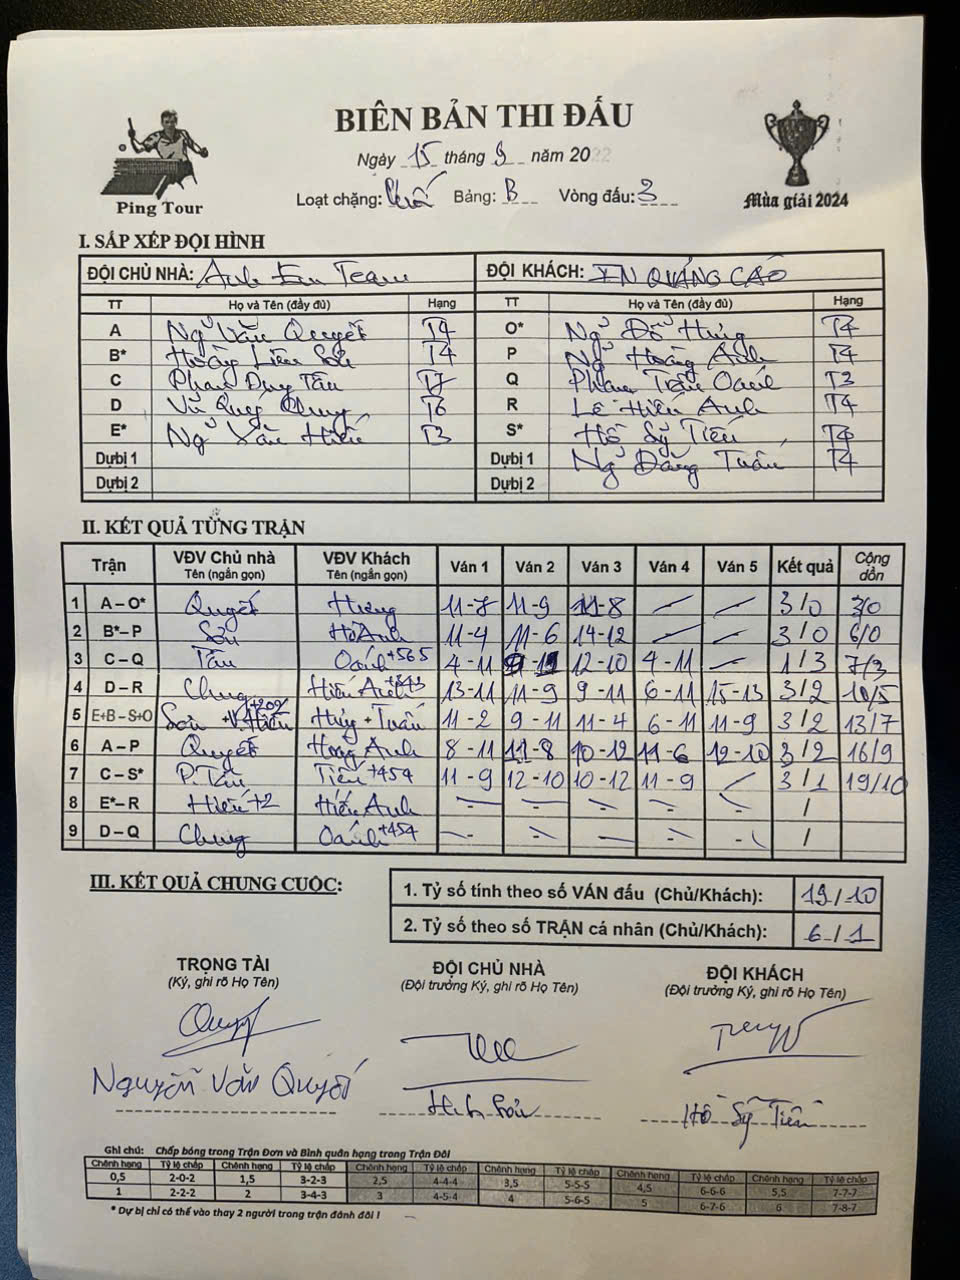 BIÊN BẢN THI ĐẤU
Ngày 15 tháng 9 năm 2022
Ping Tour
Loạt chặng: Bảng: B Vòng đấu: 3
Mùa giải 2024
I. SẮP XẾP ĐỘI HÌNH
ĐỘI CHỦ NHÀ: Anh Em Team ĐỘI KHÁCH: IN QUẢNG CÁO
TT Họ và Tên (đầy đủ) Hạng TT Họ và Tên (đầy đủ) Hạng
A Ng̃ Văn Quyết T4 O* Ng̃ Đỗ Hưng T4
B* Hoàng Liên Sơn T4 P Ng̃ Hoàng Anh T4
C Phan Duy Tân T7 Q Phan Trần Oánh T3
D Vũ Quý Chung T6 R Lê Hiếu Anh T4
E* Ng̃ Văn Hiếu T3 S* Hồ Sỹ Tiến T4
Dựbị 1 Dựbị 1 Ng̃ Đăng Tuấn T4
Dựbị 2 Dựbị 2
II. KẾT QUẢ TỪNG TRẬN
Trận VĐV Chủ nhà Tên (ngắn gọn) VĐV Khách Tên (ngắn gọn) Ván 1 Ván 2 Ván 3 Ván 4 Ván 5 Kết quả Cộng dồn
1 A – O* Quyết Hưng 11-8 11-9 11-8 3/0 3/0
2 B*– P Sơn H Anh 11-4 11-6 14-12 3/0 6/0
3 C – Q Tân Oánh +565 4-11 12-10 4-11 1/3 7/3
4 D – R Chung Hiếu Anh 13-11 11-9 9-11 6-11 15-13 3/2 10/5
5 E+B – S+O Sơn + V.Hiếu +202 Hưng + Tuấn 11-2 9-11 11-4 6-11 11-9 3/2 13/7
6 A – P Quyết Hoàng Anh 8-11 11-8 10-12 11-6 12-10 3/2 16/9
7 C – S* P.Tân Tiến +454 11-9 12-10 10-12 11-9 3/1 19/10
8 E*– R Hiếu +2 Hiếu Anh /
9 D – Q Chung Oánh +454 /
III. KẾT QUẢ CHUNG CUỘC:
1. Tỷ số tính theo số VÁN đấu (Chủ/Khách): 19/10
2. Tỷ số theo số TRẬN cá nhân (Chủ/Khách): 6/1
TRỌNG TÀI ĐỘI CHỦ NHÀ ĐỘI KHÁCH
(Ký, ghi rõ Họ Tên) (Đội trưởng Ký, ghi rõ Họ Tên) (Đội trưởng Ký, ghi rõ Họ Tên)
Nguyễn Văn Quyết Hồ Sỹ Tiến
Ghi chú: Chấp bóng trong Trận Đơn và Bình quân hạng trong Trận Đôi
Chênh hạng Tỷ lệ chấp Chênh hạng Tỷ lệ chấp Chênh hạng Tỷ lệ chấp Chênh hạng Tỷ lệ chấp Chênh hạng Tỷ lệ chấp Chênh hạng Tỷ lệ chấp
0,5 2-0-2 1,5 3-2-3 2,5 4-4-4 3,5 5-5-5 4,5 6-6-6 5,5 7-7-7
1 2-2-2 2 3-4-3 3 4-5-4 4 5-6-5 5 6-7-6 6 7-8-7
* Dự bị chỉ có thể vào thay 2 người trong trận đánh đôi !